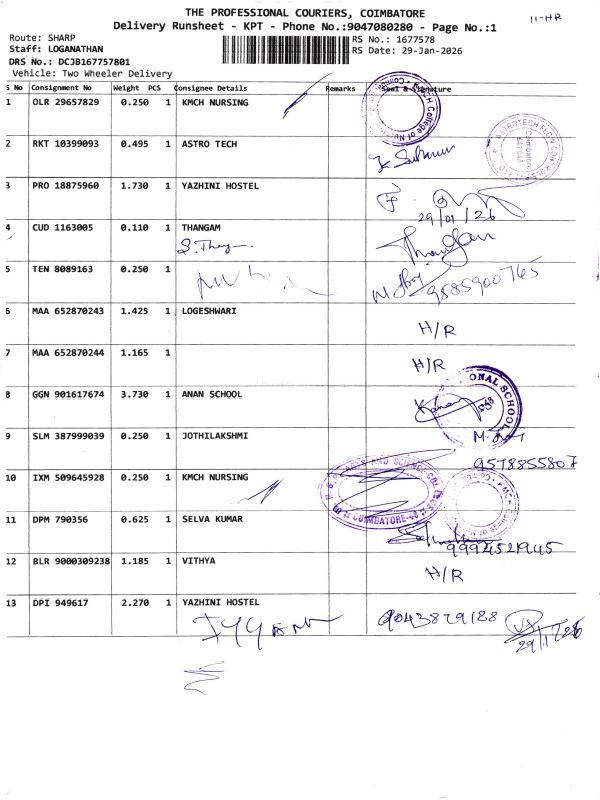 THE PROFESSIONAL COURIERS, COIMBATORE
11-HR
Delivery Runsheet - KPT - Phone No.:9047080280 - Page No.:1
Route: SHARP
RS No.: 1677578
Staff: LOGANATHAN
RS Date: 29-Jan-2026
DRS No.: DCJB167757801
Vehicle: Two Wheeler Delivery
S No Consignment No Weight PCS Consignee Details Remarks Seal & Signature
1 OLR 29657829 0.250 1 KMCH NURSING
2 RKT 10399093 0.495 1 ASTRO TECH
3 PRO 18875960 1.730 1 YAZHINI HOSTEL
29/01/26
4 CUD 1163005 0.110 1 THANGAM
5 TEN 8089163 0.250 1
9585900765
6 MAA 652870243 1.425 1 LOGESHWARI
H/R
7 MAA 652870244 1.165 1
H/R
8 GGN 901617674 3.730 1 ANAN SCHOOL
ONAL SCHOOL
9 SLM 387999039 0.250 1 JOTHILAKSHMI
9578855807
10 IXM 509645928 0.250 1 KMCH NURSING
ARTS AND SCIENCE
COIMBATORE-48
11 DPM 790356 0.625 1 SELVA KUMAR
9994521945
12 BLR 9000309238 1.185 1 VITHYA
H/R
13 DPI 949617 2.270 1 YAZHINI HOSTEL
9043879188
29/1/26